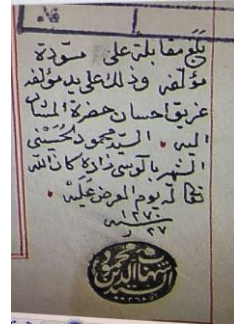 بلغ مقابلة على مسودة
مؤلفه وذلك على يد مؤلفه
غريق احسان حضرة المنان
اليه السيد محمود الحسيني
الشهير بآلوسي زاده كان الله
تعالى له يوم العرض عليه
١٢٧٠
٢٧
السيد محمود شهاب الدين